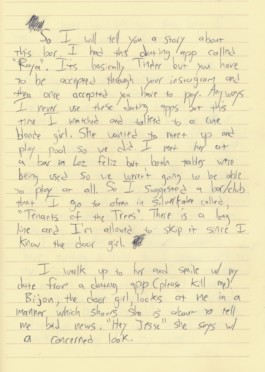 So I will tell you a story about
this bar. I had this dating app called
"Raya". Its basically Tinder but you have
to be accepted through your instagram and
then once accepted you have to pay. Anyways
I never use these dating apps but this
time I matched and talked to a cute
blonde girl. She wanted to meet up and
play pool so we did I met her at
a bar in Loz feliz but both tables were
being used so we weren't going to be able
to play at all. So I suggested a bar/club
that I go to often in silverlake called,
"Tenants of the Trees". There is a big
line and I'm allowed to skip it since I
know the door girl.
I walk up to her and smile w/ my
date from a dating app (please kill me).
Bijon, the door girl, looks at me in a
manner which shows she is about to tell
me bad news. "Hey Jesse" she says w/
a concerned look.